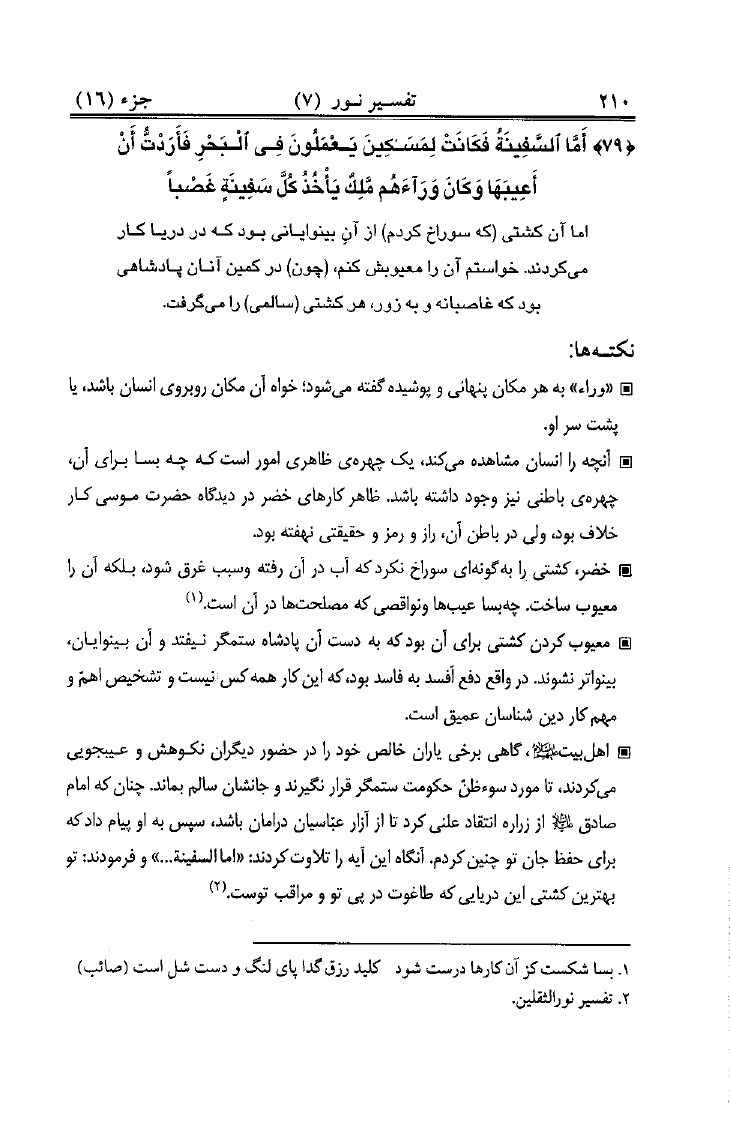 ۲۱۰ تفسیر نور (۷) جزء (۱۶)
﴿۷۹﴾ أَمَّا ٱلسَّفِينَةُ فَكَانَتْ لِمَسَـٰكِينَ يَعْمَلُونَ فِى ٱلْبَحْرِ فَأَرَدْتُّ أَنْ
أَعِيبَهَا وَكَانَ وَرَآءَهُم مَّلِكٌ يَأْخُذُ كُلَّ سَفِينَةٍ غَصْباً
اما آن کشتی (که سوراخ کردم) از آنِ بینوایانی بود که در دریا کار
می‌کردند. خواستم آن را معیوبش کنم، (چون) در کمین آنان پادشاهی
بود که غاصبانه و به زور، هر کشتی (سالمی) را می‌گرفت.
نکته‌ها:
▣ «وراء» به هر مکان پنهانی و پوشیده گفته می‌شود؛ خواه آن مکان روبروی انسان باشد، یا
پشت سر او.
▣ آنچه را انسان مشاهده می‌کند، یک چهره‌ی ظاهری امور است که چه بسا برای آن،
چهره‌ی باطنی نیز وجود داشته باشد. ظاهر کارهای خضر در دیدگاه حضرت موسی کار
خلاف بود، ولی در باطن آن، راز و رمز و حقیقتی نهفته بود.
▣ خضر، کشتی را به‌گونه‌ای سوراخ نکرد که آب در آن رفته وسبب غرق شود، بلکه آن را
معیوب ساخت. چه‌بسا عیب‌ها ونواقصی که مصلحت‌ها در آن است.(۱)
▣ معیوب کردن کشتی برای آن بود که به دست آن پادشاه ستمگر نیفتد و آن بینوایان،
بینواتر نشوند. در واقع دفع اَفسد به فاسد بود، که این کار همه کس نیست و تشخیص اهمّ و
مهم کار دین شناسان عمیق است.
▣ اهل‌بیت علیهم السلام، گاهی برخی یاران خالص خود را در حضور دیگران نکوهش و عیبجویی
می‌کردند، تا مورد سوءظنّ حکومت ستمگر قرار نگیرند و جانشان سالم بماند. چنان که امام
صادق علیه السلام از زراره انتقاد علنی کرد تا از آزار عبّاسیان درامان باشد، سپس به او پیام داد که
برای حفظ جان تو چنین کردم. آنگاه این آیه را تلاوت کردند: «اما السفینة...» و فرمودند: تو
بهترین کشتی این دریایی که طاغوت در پی تو و مراقب توست.(۲)
۱. بسا شکست کز آن کارها درست شود کلید رزق گدا پای لنگ و دست شل است (صائب)
۲. تفسیر نورالثقلین.